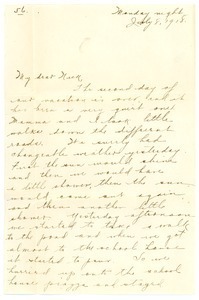 56.
Monday night,
July 8, 1918.
My dear
The second day of
our vacation is over, and it
has been a very quiet one.
Mamma and I took little
walks down the different
roads. We surely had
changeable weather yesterday
First the sun would shine
and then we would have
a little shower, then the sun
would come out again
and then another little
shower. Yesterday afternoon
we started to take a walk
to the pond and when we got
almost to the school house
it started to pour. So we
hurried up onto the school
house piazza and stayed